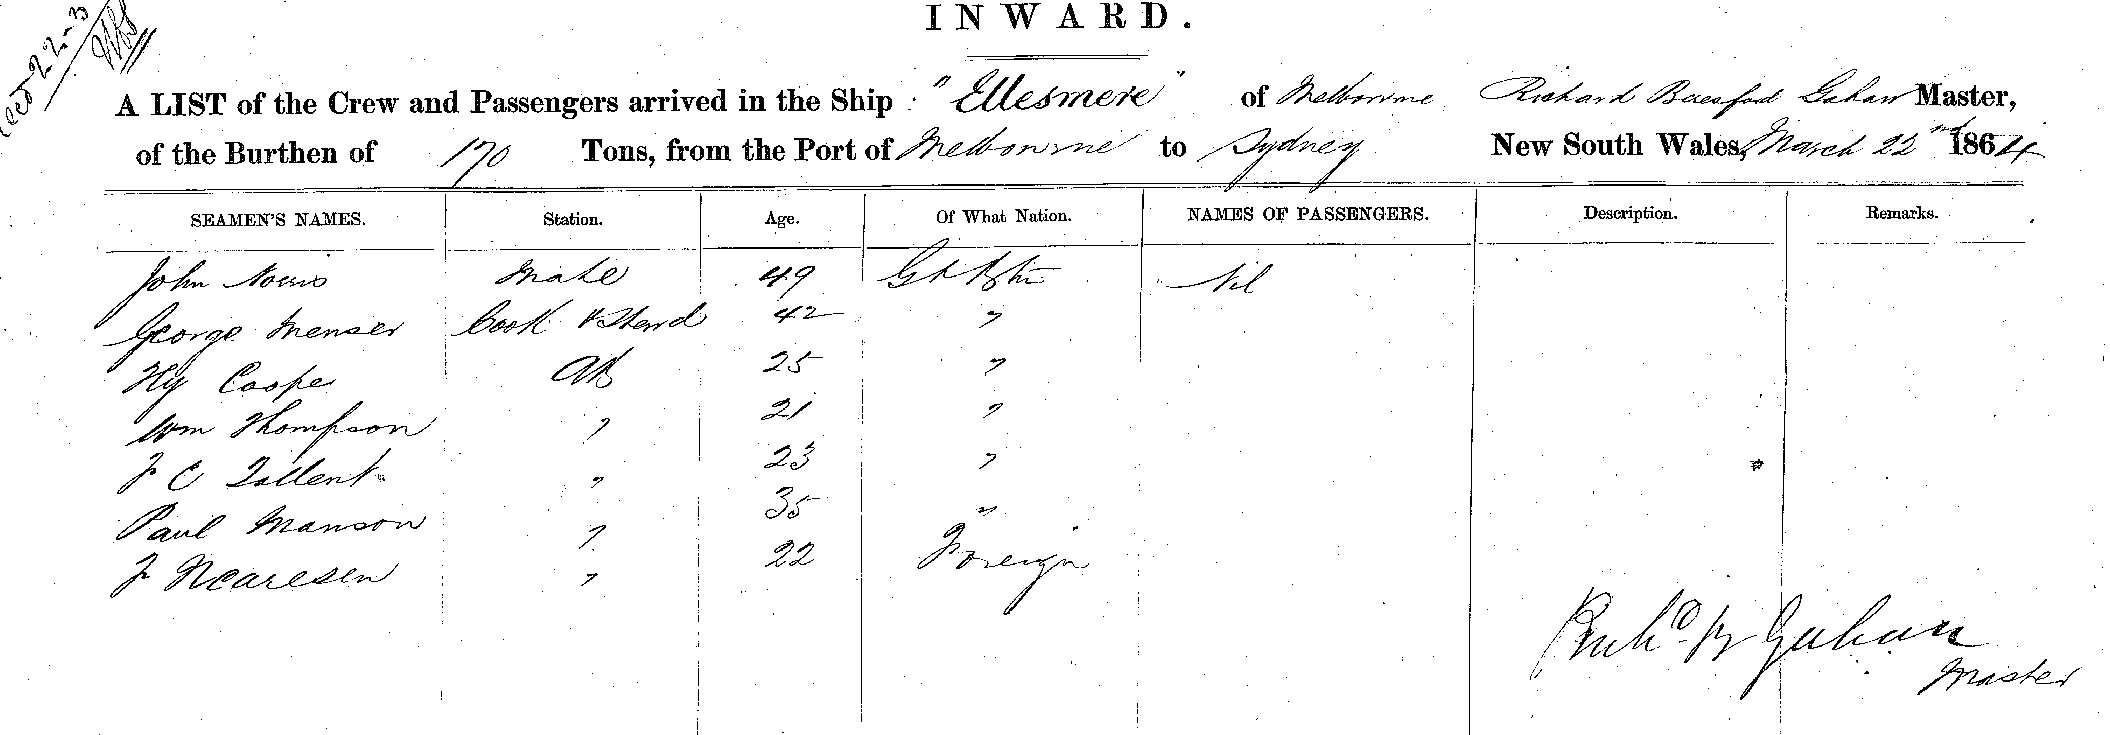 Recd 22-3
INWARD.
A LIST of the Crew and Passengers arrived in the Ship "Ellesmere" of Melbourne Richard Beresford Gahan Master,
of the Burthen of 170 Tons, from the Port of Melbourne to Sydney New South Wales, March 22nd 1864
SEAMEN'S NAMES. Station. Age. Of What Nation. NAMES OF PASSENGERS. Description. Remarks.
John Norris Mate 49 Gt Btn Nil
George Menser Cook & Steward 42 "
Hy Coope AB 25 "
Wm Thompson " 21 "
J C Tallent " 23 "
Paul Manson " 35 "
J Nearesen " 22 Foreign
Richd B Gahan
Master